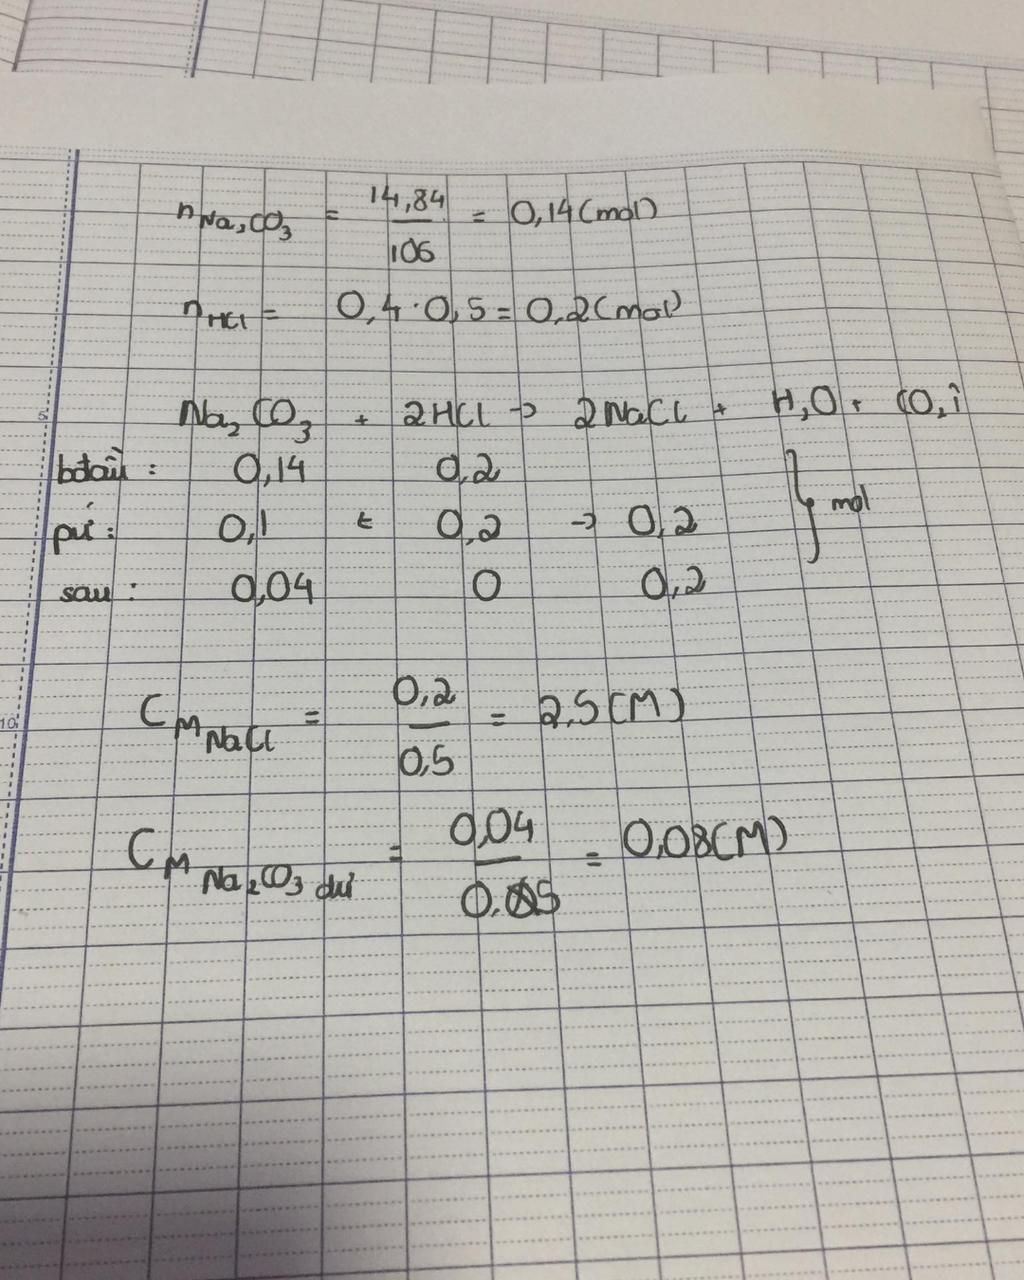 nNa₂CO₃ = 14,84/106 = 0,14 (mol)
nHCl = 0,4 · 0,5 = 0,2 (mol)
5
Na₂CO₃ + 2HCl → 2NaCl + H₂O + CO₂↑
bđầu : 0,14 0,2
pứ : 0,1 ← 0,2 → 0,2 } mol
sau : 0,04 0 0,2
10
CM NaCl = 0,2/0,5 = 2,5 (M)
CM Na₂CO₃ dư = 0,04/0,5 = 0,08 (M)